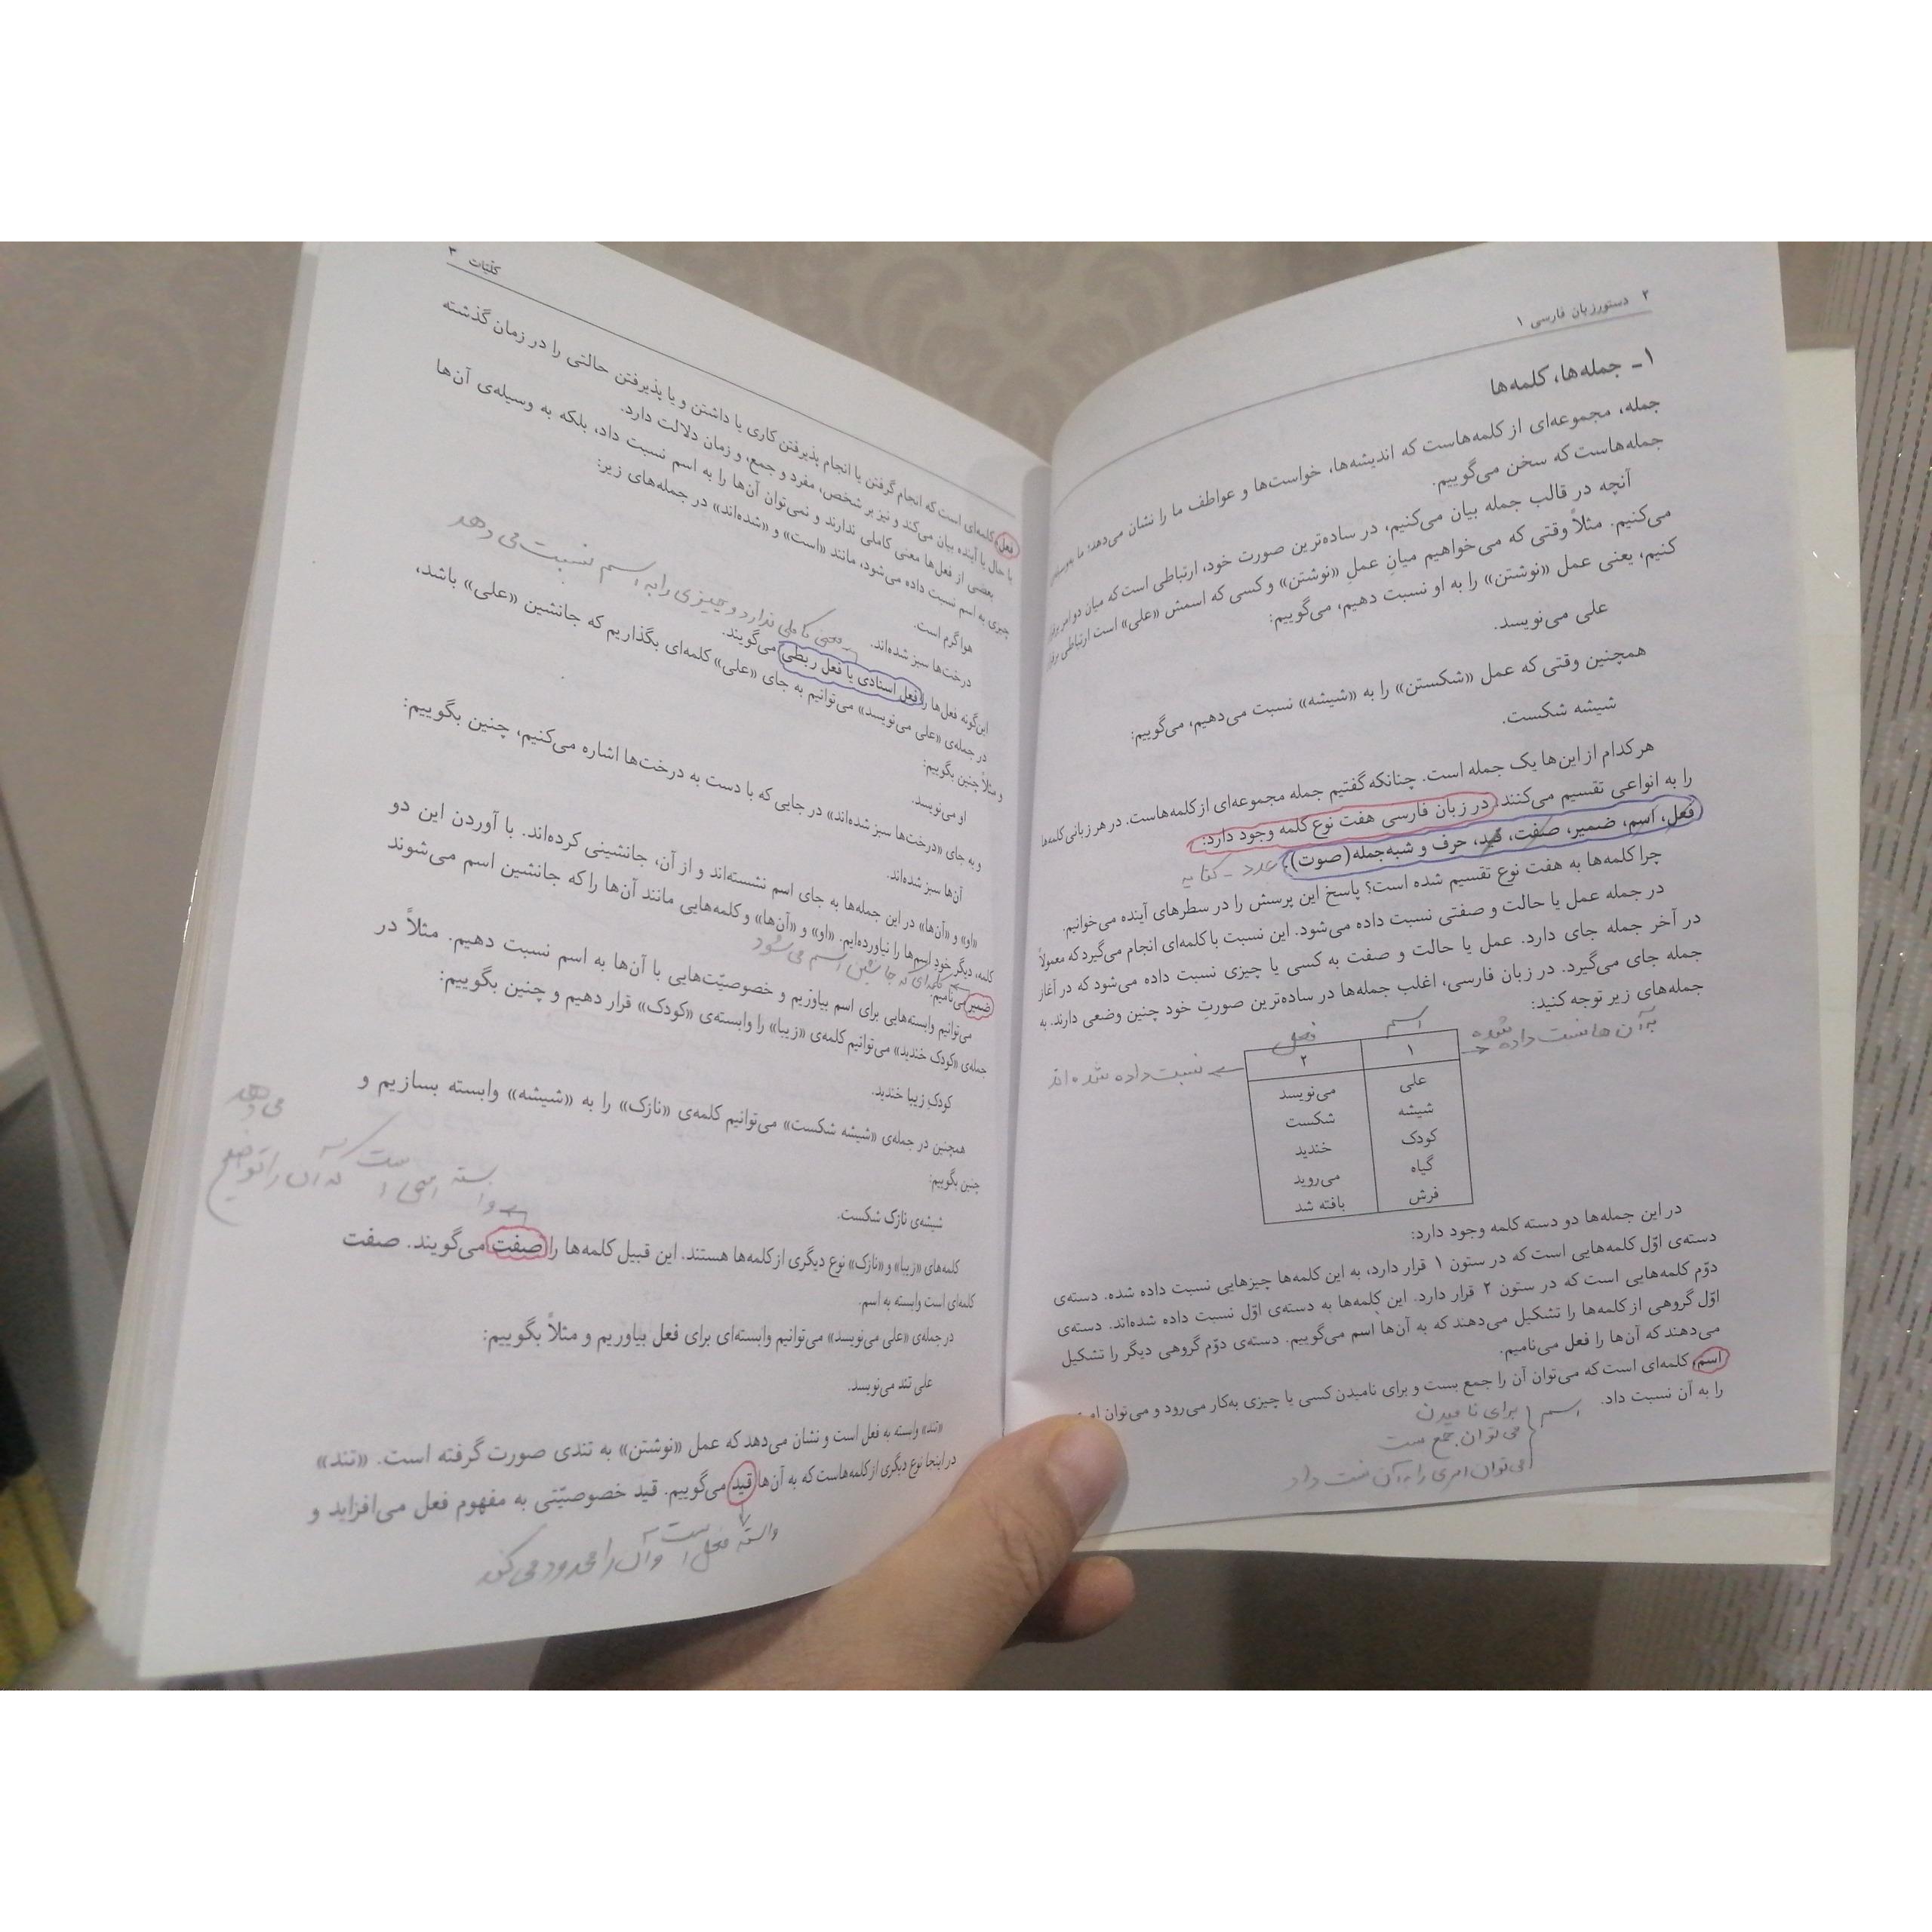 ۲ دستور زبان فارسی ۱
۱ـ جمله‌ها، کلمه‌ها
جمله، مجموعه‌ای از کلمه‌هاست که اندیشه‌ها، خواست‌ها و عواطف ما را نشان می‌دهد؛ ما
جمله‌هاست که سخن می‌گوییم.
آنچه در قالب جمله بیان می‌کنیم، در ساده‌ترین صورت خود، ارتباطی است که میان دو امر
می‌کنیم. مثلاً وقتی که می‌خواهیم میانِ عملِ «نوشتن» و کسی که اسمش «علی» است ارتباطی
کنیم، یعنی عمل «نوشتن» را به او نسبت دهیم، می‌گوییم:
علی می‌نویسد.
همچنین وقتی که عمل «شکستن» را به «شیشه» نسبت می‌دهیم، می‌گوییم:
شیشه شکست.
هر کدام از این‌ها یک جمله است. چنانکه گفتیم جمله مجموعه‌ای از کلمه‌هاست. در هر زبانی کلمه‌ها
را به انواعی تقسیم می‌کنند. در زبان فارسی هفت نوع کلمه وجود دارد:
فعل، اسم، ضمیر، صفت، قید، حرف و شبه‌جمله (صوت). عدد - کنایه
چرا کلمه‌ها به هفت نوع تقسیم شده است؟ پاسخ این پرسش را در سطرهای آینده می‌خوانیم.
در جمله عمل یا حالت و صفتی نسبت داده می‌شود. این نسبت با کلمه‌ای انجام می‌گیرد که معمولاً
در آخر جمله جای دارد. عمل یا حالت و صفت به کسی یا چیزی نسبت داده می‌شود که در آغاز
جمله جای می‌گیرد. در زبان فارسی، اغلب جمله‌ها در ساده‌ترین صورتِ خود چنین وضعی دارند. به
جمله‌های زیر توجه کنید:
اسم فعل
به آن‌ها نسبت داده شده
نسبت داده شده‌اند
۱ ۲
علی می‌نویسد
شیشه شکست
کودک خندید
گیاه می‌روید
فرش بافته شد
در این جمله‌ها دو دسته کلمه وجود دارد:
دسته‌ی اوّل کلمه‌هایی است که در ستون ۱ قرار دارد، به این کلمه‌ها چیزهایی نسبت داده شده. دسته‌ی
دوّم کلمه‌هایی است که در ستون ۲ قرار دارد. این کلمه‌ها به دسته‌ی اوّل نسبت داده شده‌اند. دسته‌ی
اوّل گروهی از کلمه‌ها را تشکیل می‌دهند که به آن‌ها اسم می‌گوییم. دسته‌ی دوّم گروهی دیگر را تشکیل
می‌دهند که آن‌ها را فعل می‌نامیم.
اسم، کلمه‌ای است که می‌توان آن را جمع بست و برای نامیدن کسی یا چیزی به‌کار می‌رود و می‌توان
را به آن نسبت داد.
اسم
برای نامیدن
می‌توان جمع بست
می‌توان امری را به آن نسبت داد
کلّیّات ۳
فعل، کلمه‌ای است که انجام گرفتن یا انجام پذیرفتن کاری یا داشتن و یا پذیرفتن حالتی را در زمان گذشته
یا حال یا آینده بیان می‌کند و نیز بر شخص، مفرد و جمع، و زمان دلالت دارد.
بعضی از فعل‌ها معنی کاملی ندارند و نمی‌توان آن‌ها را به اسم نسبت داد، بلکه به وسیله‌ی آن‌ها
چیزی به اسم نسبت داده می‌شود، مانند «است» و «شده‌اند» در جمله‌های زیر:
هوا گرم است.
درخت‌ها سبز شده‌اند.
معنی کاملی ندارد و چیزی را به اسم نسبت می‌دهد
این‌گونه فعل‌ها را فعل اسنادی یا فعل ربطی می‌گویند.
در جمله‌ی «علی می‌نویسد» می‌توانیم به جای «علی» کلمه‌ای بگذاریم که جانشین «علی» باشد،
و مثلاً چنین بگوییم:
او می‌نویسد.
و به جای «درخت‌ها سبز شده‌اند» در جایی که با دست به درخت‌ها اشاره می‌کنیم، چنین بگوییم:
آن‌ها سبز شده‌اند.
«او» و «آن‌ها» در این جمله‌ها به جای اسم نشسته‌اند و از آن، جانشینی کرده‌اند. با آوردن این دو
کلمه، دیگر خودِ اسم‌ها را نیاورده‌ایم. «او» و «آن‌ها» و کلمه‌هایی مانند آن‌ها را که جانشین اسم می‌شوند
ضمیر می‌نامیم.
کلمه‌ای که جانشین اسم می‌شود
می‌توانیم وابسته‌هایی برای اسم بیاوریم و خصوصیّت‌هایی با آن‌ها به اسم نسبت دهیم. مثلاً در
جمله‌ی «کودک خندید» می‌توانیم کلمه‌ی «زیبا» را وابسته‌ی «کودک» قرار دهیم و چنین بگوییم:
کودکِ زیبا خندید.
همچنین در جمله‌ی «شیشه شکست» می‌توانیم کلمه‌ی «نازک» را به «شیشه» وابسته بسازیم و
چنین بگوییم:
شیشه‌ی نازک شکست.
وابسته است که آن را توضیح می‌دهد
کلمه‌های «زیبا» و «نازک» نوع دیگری از کلمه‌ها هستند. این قبیل کلمه‌ها را صفت می‌گویند. صفت
کلمه‌ای است وابسته به اسم.
در جمله‌ی «علی می‌نویسد» می‌توانیم وابسته‌ای برای فعل بیاوریم و مثلاً بگوییم:
علی تند می‌نویسد.
«تند» وابسته به فعل است و نشان می‌دهد که عمل «نوشتن» به تندی صورت گرفته است. «تند»
در اینجا نوع دیگری از کلمه‌هاست که به آن‌ها قید می‌گوییم. قید خصوصیّتی به مفهوم فعل می‌افزاید و
وابسته فعل است و آن را محدود می‌کند